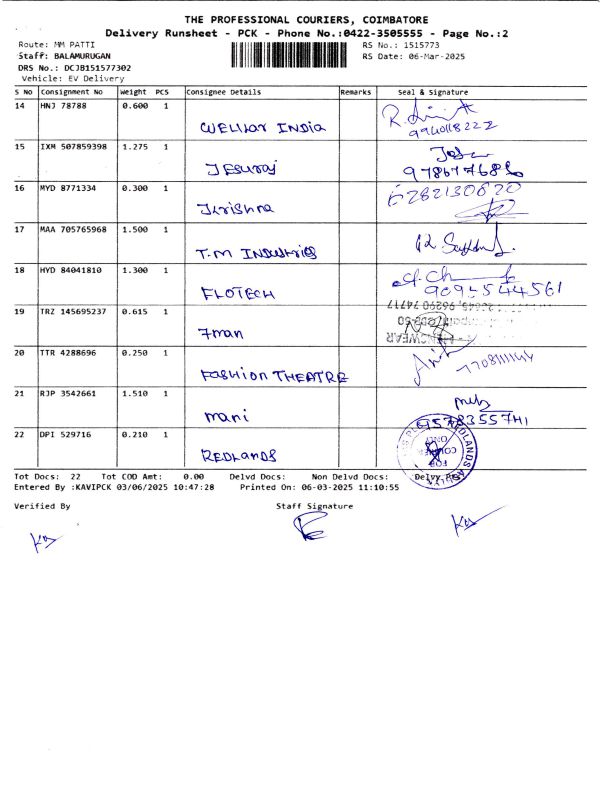 THE PROFESSIONAL COURIERS, COIMBATORE
Delivery Runsheet - PCK - Phone No.:0422-3505555 - Page No.:2
Route: MM PATTI RS No.: 1515773
Staff: BALAMURUGAN RS Date: 06-Mar-2025
DRS No.: DCJB151577302
Vehicle: EV Delivery
S No Consignment No Weight PCS Consignee Details Remarks Seal & Signature
14 HNJ 78788 0.600 1
INDIA
9940118222
15 IXM 507859398 1.275 1
Jesuraj
16 MYD 8771334 0.300 1
6282130820
Jkrishna
17 MAA 705765968 1.500 1
T.M INDUSTRIES
18 HYD 84041810 1.300 1
FLOTECH
9095544561
19 TRZ 145695237 0.615 1
7man
20 TTR 4288696 0.250 1
FASHION THEATRE
21 RJP 3542661 1.510 1
mani
22 DPI 529716 0.210 1
REDLANDS
Tot Docs: 22 Tot COD Amt: 0.00 Delvd Docs: Non Delvd Docs:
Entered By :KAVIPCK 03/06/2025 10:47:28 Printed On: 06-03-2025 11:10:55
Verified By Staff Signature